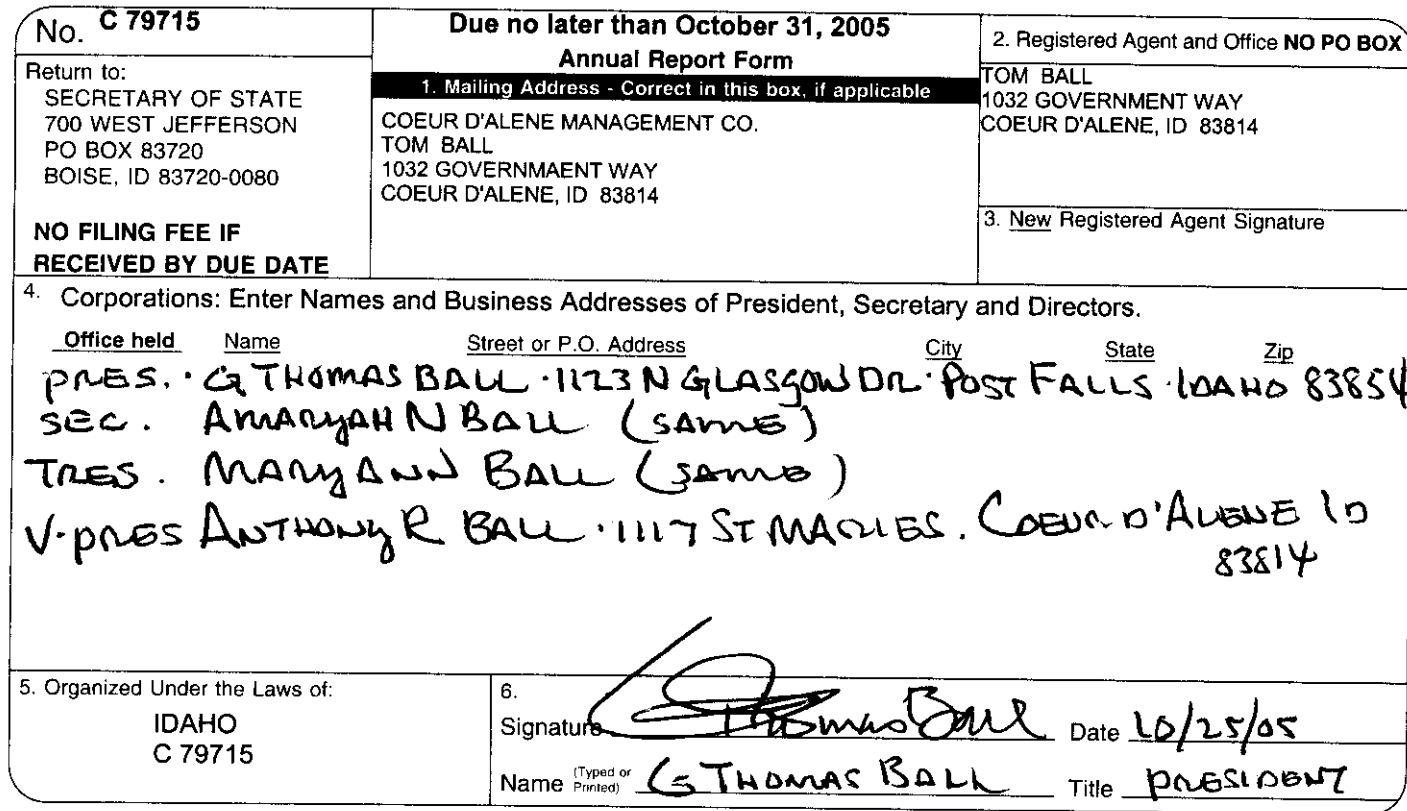 No. C 79715
Return to:
SECRETARY OF STATE
700 WEST JEFFERSON
PO BOX 83720
BOISE, ID 83720-0080
NO FILING FEE IF
RECEIVED BY DUE DATE
Due no later than October 31, 2005
Annual Report Form
1. Mailing Address - Correct in this box, if applicable
COEUR D'ALENE MANAGEMENT CO.
TOM BALL
1032 GOVERNMAENT WAY
COEUR D'ALENE, ID 83814
2. Registered Agent and Office NO PO BOX
TOM BALL
1032 GOVERNMENT WAY
COEUR D'ALENE, ID 83814
3. New Registered Agent Signature
4. Corporations: Enter Names and Business Addresses of President, Secretary and Directors.
Office held Name Street or P.O. Address City State Zip
PRES. · G THOMAS BALL · 1123 N GLASGOW DR · POST FALLS · IDAHO 83854
SEC. AMARYAH N BALL (SAME)
TRES. MARYANN BALL (SAME)
V-PRES ANTHONY R BALL · 1117 ST MARIES. COEUR D'ALENE ID
83814
5. Organized Under the Laws of:
IDAHO
C 79715
6.
Signature G Thomas Ball Date 10/25/05
Name (Typed or Printed) G THOMAS BALL Title PRESIDENT